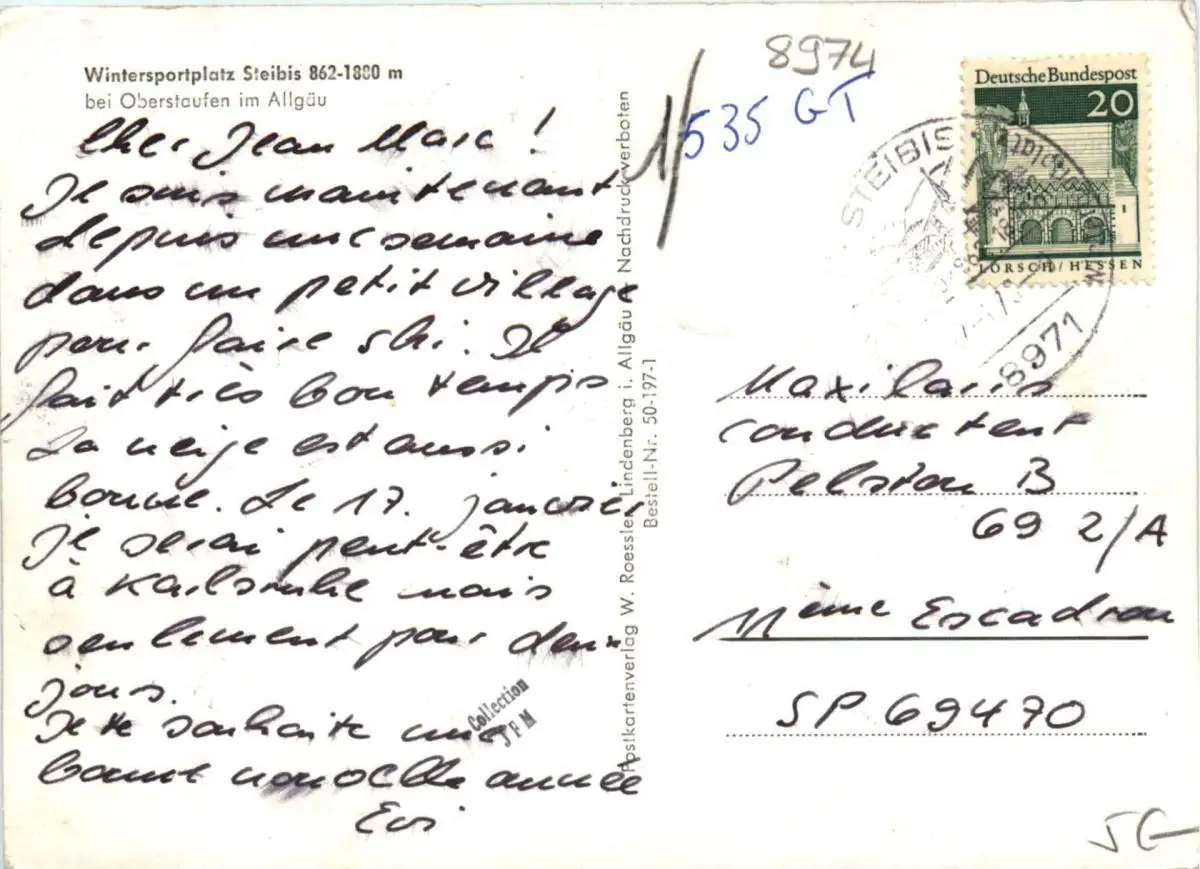 Wintersportplatz Steibis 862-1880 m
bei Oberstaufen im Allgäu
Cher Jean Marc !
Je suis maintenant
depuis une semaine
dans un petit village
pour faire ski. Il
fait très bon temps
La neige est aussi
bonne. Le 17. janvier
je serai peut-être
à Karlsruhe mais
seulement pour deux
jours.
Je te souhaite une
bonne nouvelle année
Evi
Collection
JFM
Postkartenverlag W. Roessler, Lindenberg i. Allgäu Nachdruck verboten
Bestell-Nr. 50-197-1
8974
1/
535 GT
Deutsche Bundespost
20
LORSCH/HESSEN
STEIBIS
8971
conducteur
Peloton B
69 2/A
11ème Escadron
SP 69470
5€